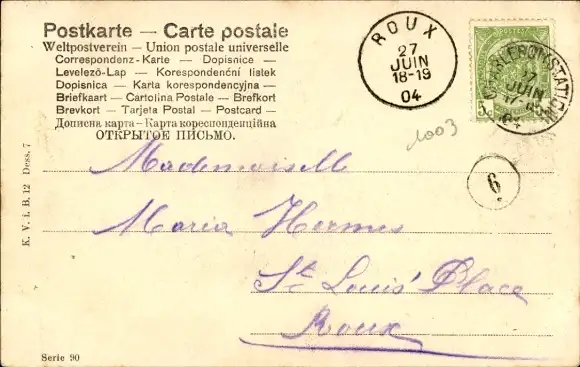 Postkarte — Carte postale
Weltpostverein — Union postale universelle
Correspondenz-Karte — Dopisnice —
Levelező-Lap — Korespondenční listek
Dopisnica — Karta korespondencyjna —
Briefkaart — Cartolina Postale — Brefkort
Brevkort — Tarjeta Postal — Postcard —
Дописна карта - Карта кореспонденційна
ОТКРЫТОЕ ПИСЬМО.
ROUX
27
JUIN
18-19
04
5c
CHARLEROI (STATION)
27
JUIN
04
1003
6
Mademoiselle
Maria Hermes
St Louis' Place
Roux
K. V. i. B. 12 Dess. 7
Serie 90